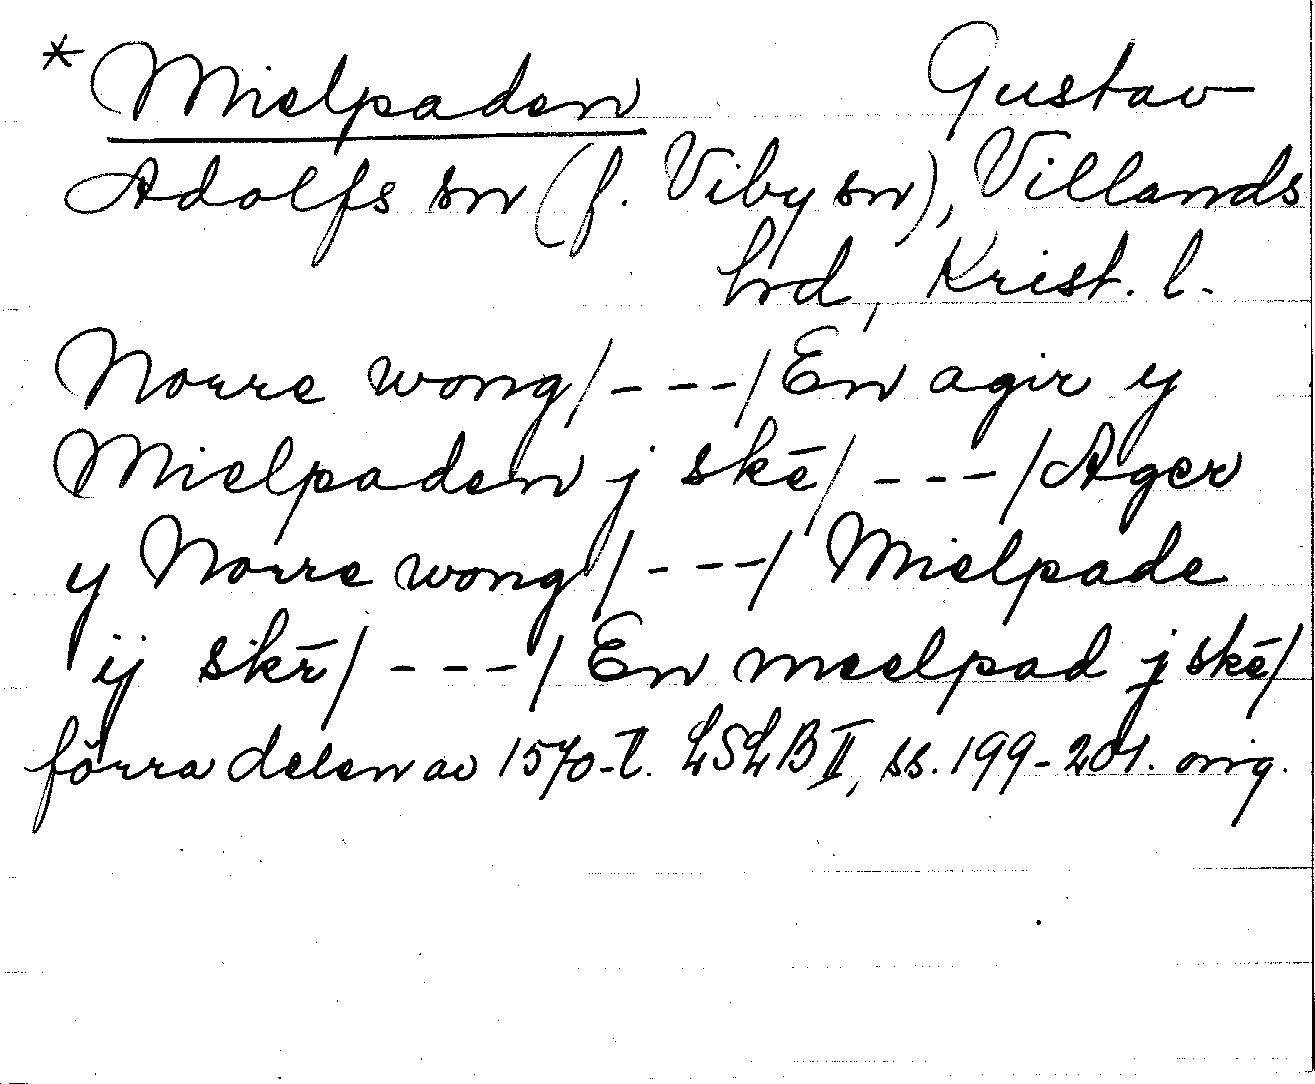 * Mielpaden Gustav
Adolfs sn (f. Viby sn), Villands
hrd, Krist. l.
Norre wong/---/En agir y
Mielpaden j skē/---/Ager
y Norre wong/---/Mielpade
ij skē/---/En meelpad j skē/
förra delen av 1570-t. LSLB II, ss. 199-201. orig.